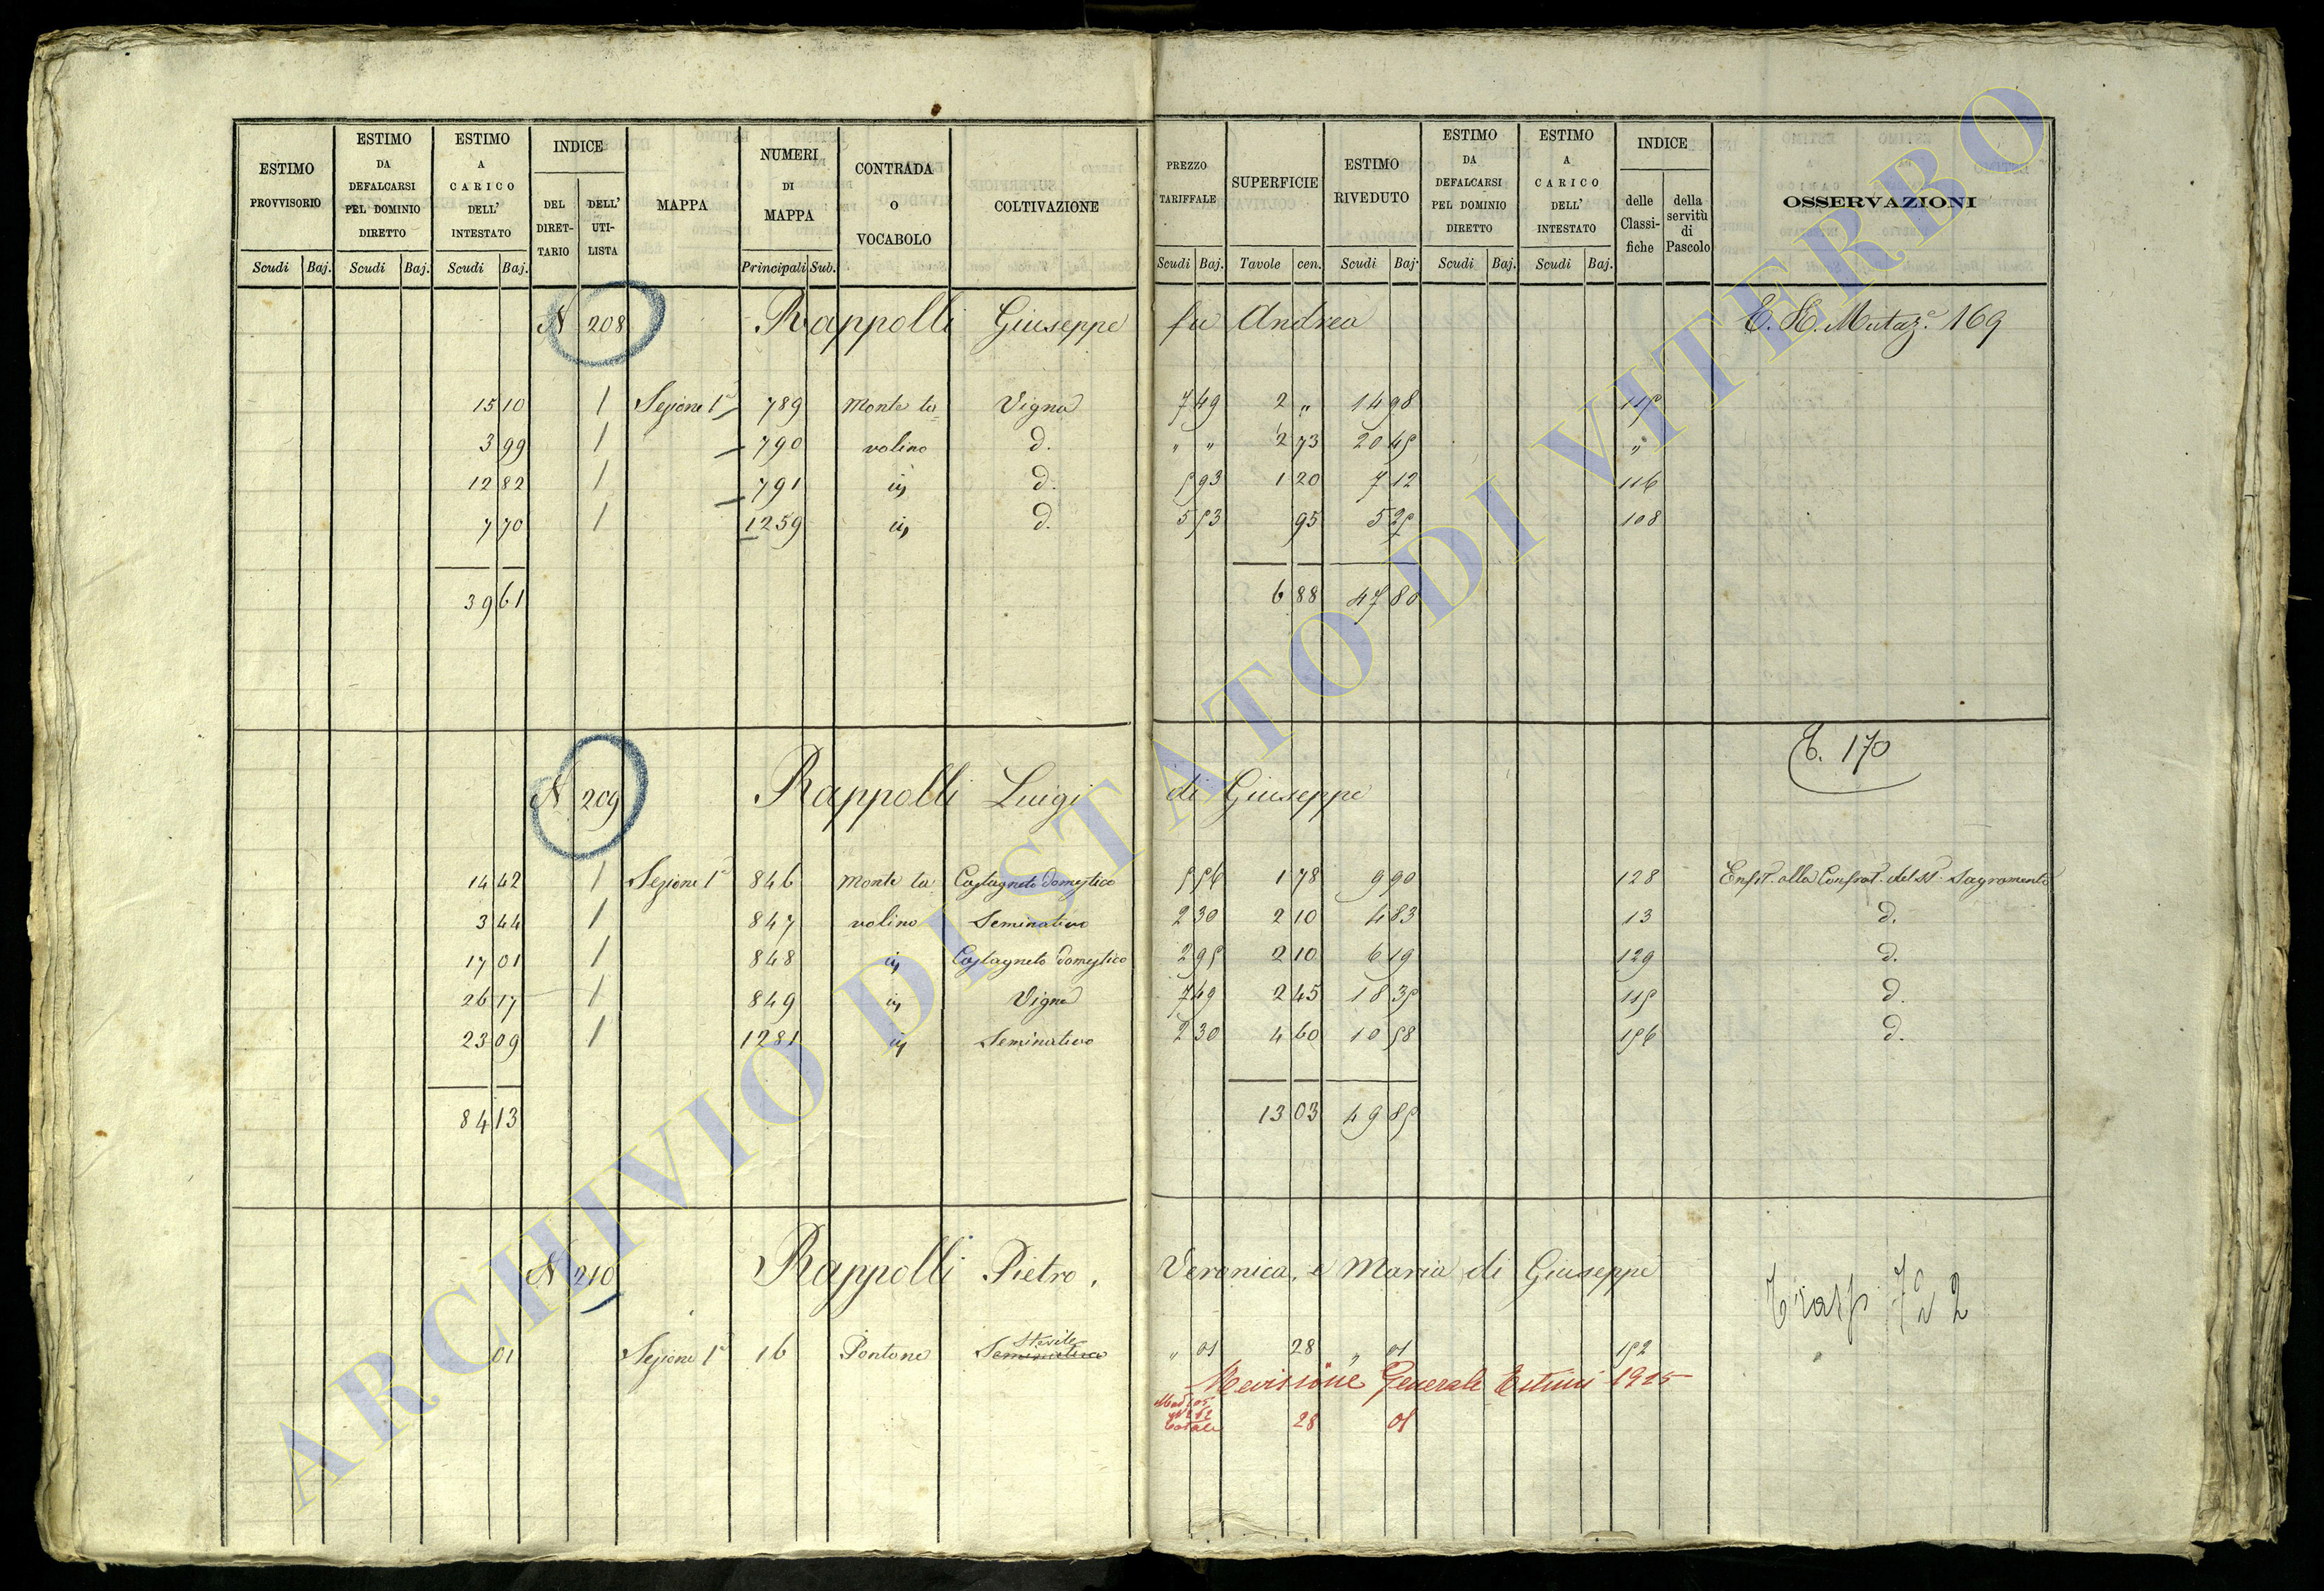 ESTIMO PROVVISORIO
ESTIMO DA DEFALCARSI PEL DOMINIO DIRETTO
ESTIMO A CARICO DELL' INTESTATO
INDICE
DEL DIRETTARIO
DELL' UTILISTA
MAPPA
NUMERI DI MAPPA
CONTRADA O VOCABOLO
COLTIVAZIONE
PREZZO TARIFFALE
SUPERFICIE
ESTIMO RIVEDUTO
ESTIMO DA DEFALCARSI PEL DOMINIO DIRETTO
ESTIMO A CARICO DELL' INTESTATO
INDICE
delle Classifiche
della servitù di Pascolo
OSSERVAZIONI
Scudi Baj. Scudi Baj. Scudi Baj. Principali Sub. Scudi Baj. Tavole cen. Scudi Baj. Scudi Baj. Scudi Baj.
N 208 Rappolli Giuseppe fu Andrea Mutaz.e 169
15 10 1 Sezione 1a 789 Monte ta Vigna 7 49 2 " 14 98 115
3 99 1 790 volino d. " " 2 73 20 45 "
12 82 1 791 iv d. 5 93 1 20 7 12 116
7 70 1 1259 iv d. 5 53 95 5 25 108
39 61 6 88 47 80
E. 170
N 209 Rappolli Luigi di Giuseppe
14 42 1 Sezione 1a 846 Monte ta Castagneto domestico 5 56 1 78 9 90 128 Enfit. alla Confrat. del SS. Sagramento
3 44 1 847 volino Seminativo 2 30 2 10 4 83 13 d.
17 01 1 848 iv Castagneto domestico 2 95 2 10 6 19 129 d.
26 17 1 849 iv Vigna 7 49 2 45 18 35 115 d.
23 09 1 1281 iv Seminativo 2 30 4 60 10 58 156 d.
84 13 13 03 49 85
N 210 Rappolli Pietro, Veronica, e Maria di Giuseppe
Sterile
01 Sezione 1a 16 Pontone Seminativo " 01 28 " 01 152
Revisione Generale Estimi 1925
Totale 28 01
ARCHIVIO DI STATO DI VITERBO